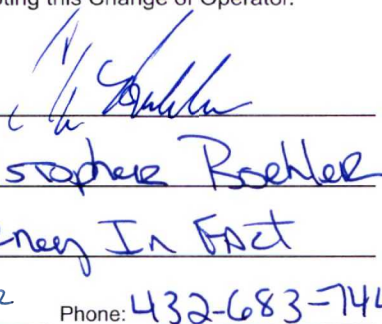 oting this Change of Operator.
stopher Boehler
ney In Fact
2 Phone: 432-683-744